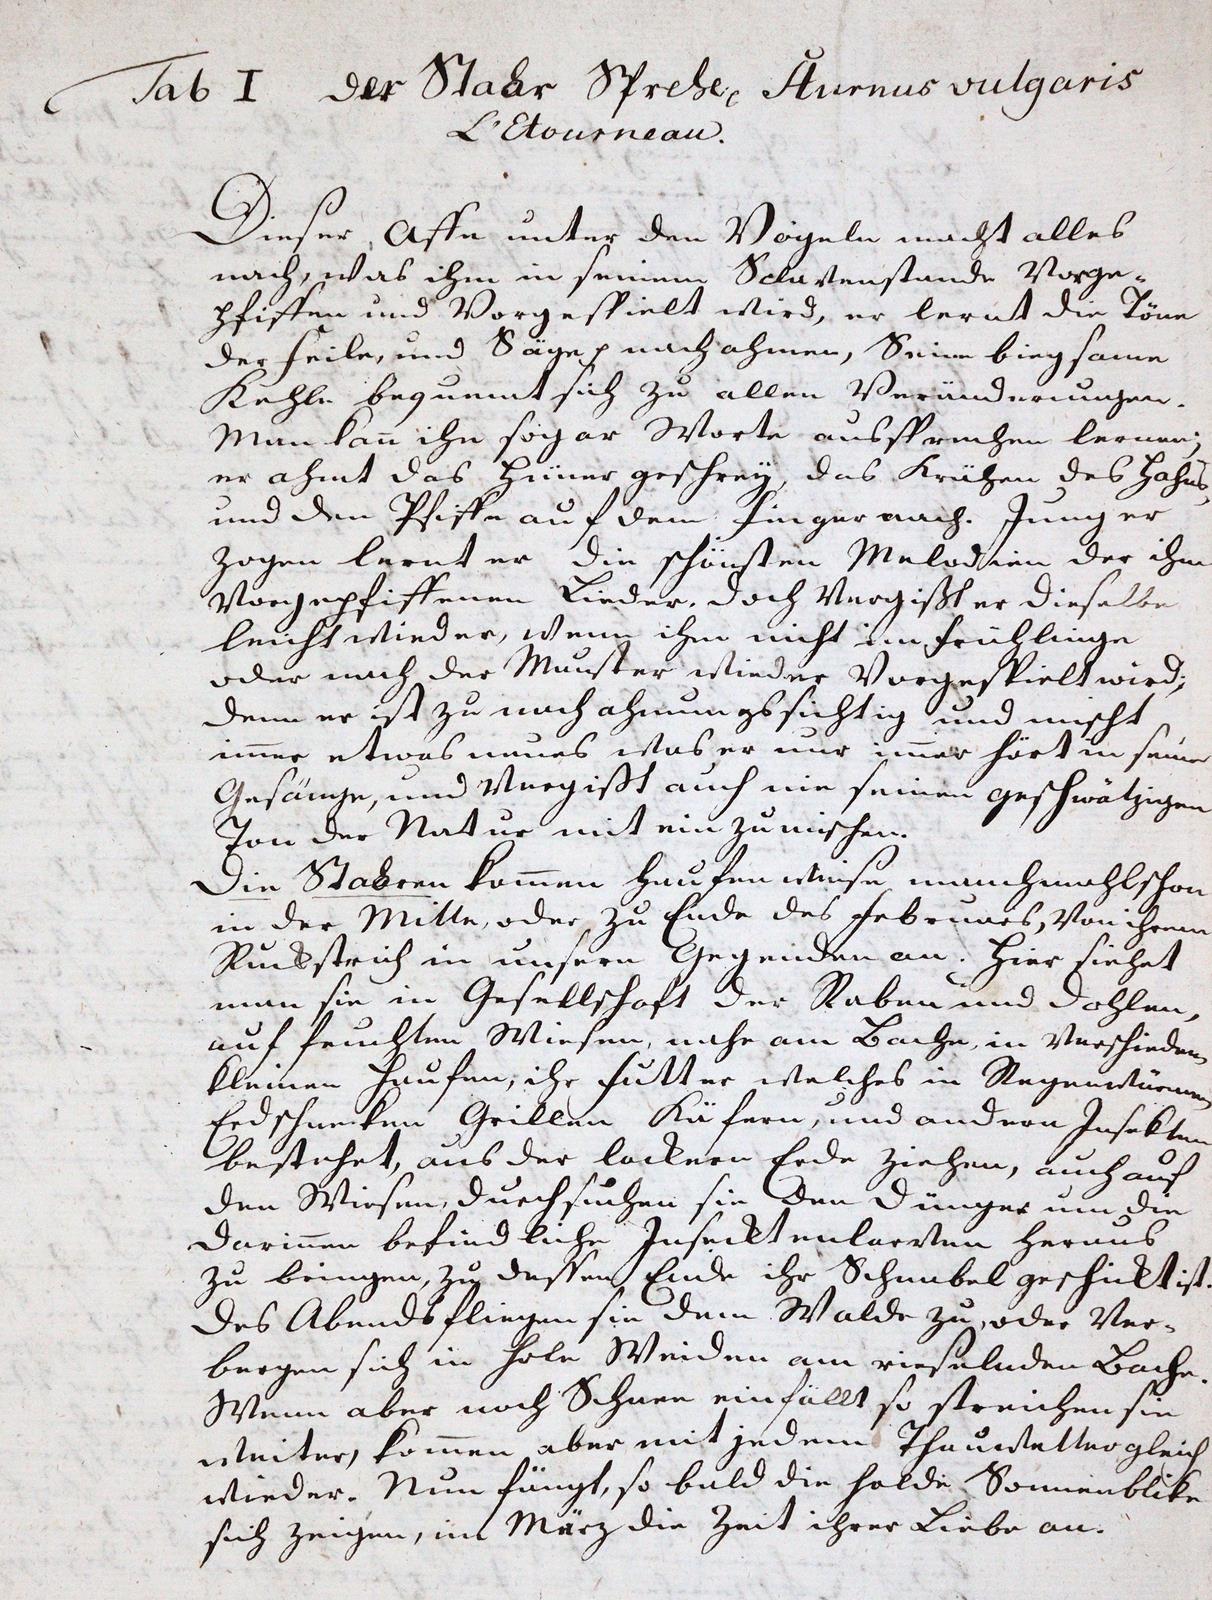 Tab I der Stahr Sprehe, Sturnus vulgaris
L'Etourneau.
Dieser Affe unter den Vögeln macht alles
nach, was ihm in seinem Sclavenstande Vorge-
pfiffen und Vorgespielt wird, er lernt die Töne
der Feile, und Säge p nachahmen, Seine biegsame
Kehle bequemt sich zu allen Veränderungen.
Man kan̄ ihn sogar Worte aussprechen lernen;
er ahmt das Hünergeschrey, das Krähen des Hahns
und den Pfiffe auf dem Finger nach. Jung er
zogen lernt er die schönsten Melodien der ihm
Vorgepfiffenen Lieder. doch Vergißt er dieselbe
leicht wieder, wenn ihm nicht im Frühlinge
oder nach der Mauster wieder Vorgespielt wird;
denn er ist zu nachahmungssichtig und mischt
im̄er etwas neues was er nur im̄er hört in seine
Gesänge, und Vergißt auch nie seinen geschwätzigen
Ton der Natur mit ein zu mischen.
Die Stahren kom̄en haufenweise manchmahl schon
in der Mitte, oder zu Ende des Februars, Von ihrem
Rückstrich in unsern Gegenden an. Hier siehet
man sie in Gesellschaft der Raben und Dohlen,
auf feuchten Wiesen, nahe am Bache, in Verschieden
kleinen Haufen, ihr Futter welches in Regenwürmern
Erdschnecken Grillen Käfern, und andern Insekten
bestehet, aus der lockern Erde ziehen, auch auf
den Wiesen, durchsuchen sie den Dünger um die
darin̄en befindliche Insecktenlarven heraus
zu bringen, zu dessen Ende ihr Schnabel geschickt ist.
Des Abends fliegen sie dem Walde zu, oder Ver-
bergen sich in hole Weiden am rieselnden Bache.
Wenn aber noch Schnee einfällt so streichen sie
weiter, kom̄en aber mit jedem Thauwetter gleich
wieder. Nun fängt, so bald die holde Sonnenblike
sich zeigen, im März die Zeit ihrer Liebe an.